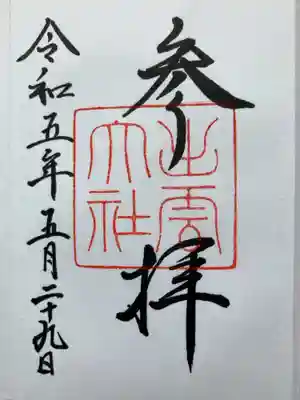 参拝
出雲
大社
令和五年五月二十九日